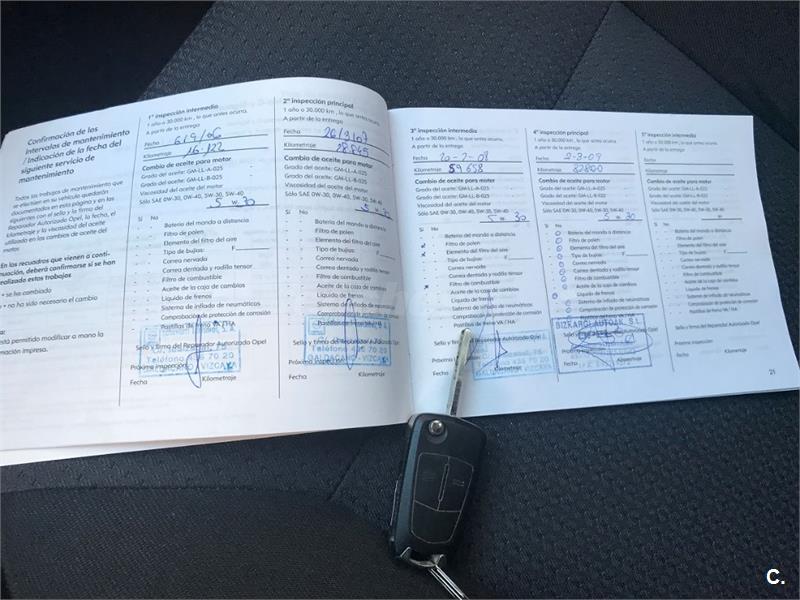 Confirmación de los
intervalos de mantenimiento
/ Indicación de la fecha del
siguiente servicio de
mantenimiento
Todos los trabajos de mantenimiento que
se efectúen en su vehículo quedarán
documentados en esta página y en las
siguientes con el sello y la firma del
Reparador Autorizado Opel, la fecha, el
kilometraje y la viscosidad del aceite
utilizado en los cambios de aceite del
motor.
En los recuadros que vienen a conti-
nuación, deberá confirmarse si se han
realizado estos trabajos
• se ha cambiado
• no ha sido necesario el cambio
está permitido modificar a mano la
mación impresa.
1ª inspección intermedia
1 año o 30.000 km, lo que antes ocurra.
A partir de la entrega
Fecha 6/9/06
Kilometraje 16.122
Cambio de aceite para motor
Grado del aceite: GM-LL-A-025
Grado del aceite: GM-LL-B-025
Viscosidad del aceite del motor
Sólo SAE 0W-30, 0W-40, 5W-30, 5W-40
5 W 30
Sí No
Bateria del mando a distancia
Filtro de polen
Elemento del filtro del aire
Tipo de bujías: F
Correa nervada
Correa dentada y rodillo tensor
Filtro de combustible
Aceite de la caja de cambios
Líquido de frenos
Sistema de inflado de neumáticos
Comprobación de protección de corrosión
Pastillas de freno VA/HA
Sello y firma del Reparador Autorizado Opel
Teléfono 456 70 20
GALDACANO - VIZCAYA
Próxima inspección
Fecha Kilometraje
2ª inspección principal
1 año o 30.000 km, lo que antes ocurra.
A partir de la entrega
Fecha 26/9/07
Kilometraje 38.845
Cambio de aceite para motor
Grado del aceite: GM-LL-A-025
Grado del aceite: GM-LL-B-025
Viscosidad del aceite del motor
Sólo SAE 0W-30, 0W-40, 5W-30, 5W-40
5 W 30
Sí No
Bateria del mando a distancia
Filtro de polen
Elemento del filtro del aire
Tipo de bujías: F
Correa nervada
Correa dentada y rodillo tensor
Filtro de combustible
Aceite de la caja de cambios
Líquido de frenos
Sistema de inflado de neumáticos
Comprobación de protección de corrosión
Pastillas de freno VA/HA
Sello y firma del Reparador Autorizado Opel
Teléfono 456 70 20
GALDACANO - VIZCAYA
Próxima inspección
Fecha Kilometraje
3ª inspección intermedia
1 año o 30.000 km, lo que antes ocurra.
A partir de la entrega
Fecha 20-2-08
Kilometraje 59658
Cambio de aceite para motor
Grado del aceite: GM-LL-A-025
Grado del aceite: GM-LL-B-025
Viscosidad del aceite del motor
Sólo SAE 0W-30, 0W-40, 5W-30, 5W-40
5 = 30
Sí No
Bateria del mando a distancia
Filtro de polen
Elemento del filtro del aire
Tipo de bujías: F
Correa nervada
Correa dentada y rodillo tensor
Filtro de combustible
Aceite de la caja de cambios
Líquido de frenos
Sistema de inflado de neumáticos
Comprobación de protección de corrosión
Pastillas de freno VA/HA
Sello y firma del Reparador Autorizado Opel
Próxima
Kilometraje
4ª inspección principal
1 año o 30.000 km, lo que antes ocurra.
A partir de la entrega
Fecha 2-3-09
Kilometraje 82800
Cambio de aceite para motor
Grado del aceite: GM-LL-A-025
Grado del aceite: GM-LL-B-025
Viscosidad del aceite del motor
Sólo SAE 0W-30, 0W-40, 5W-30, 5W-40
5 = 30
Sí No
Bateria del mando a distancia
Filtro de polen
Elemento del filtro del aire
Tipo de bujías: F
Correa nervada
Correa dentada y rodillo tensor
Filtro de combustible
Aceite de la caja de cambios
Líquido de frenos
Sistema de inflado de neumáticos
Comprobación de protección de corrosión
Pastillas de freno VA/HA
BIZKARGI AUTOAK, S.L.
OPEL
Fecha Kilometraje
5ª inspección intermedia
1 año o 30.000 km, lo que antes ocurra.
A partir de la entrega
Fecha
Kilometraje
Cambio de aceite para motor
Grado del aceite: GM-LL-A-025
Grado del aceite: GM-LL-B-025
Viscosidad del aceite del motor
Sólo SAE 0W-30, 0W-40, 5W-30, 5W-40
Sí No
Bateria del mando a distancia
Filtro de polen
Elemento del filtro del aire
Tipo de bujías: F
Correa nervada
Correa dentada y rodillo tensor
Filtro de combustible
Aceite de la caja de cambios
Líquido de frenos
Sistema de inflado de neumáticos
Comprobación de protección de corrosión
Pastillas de freno VA/HA
Sello y firma del Reparador Autorizado Opel
Próxima inspección
Fecha Kilometraje
21
C.